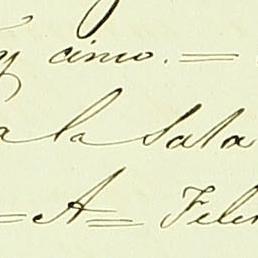 y cinco. =
a la Sala
= A = Feli